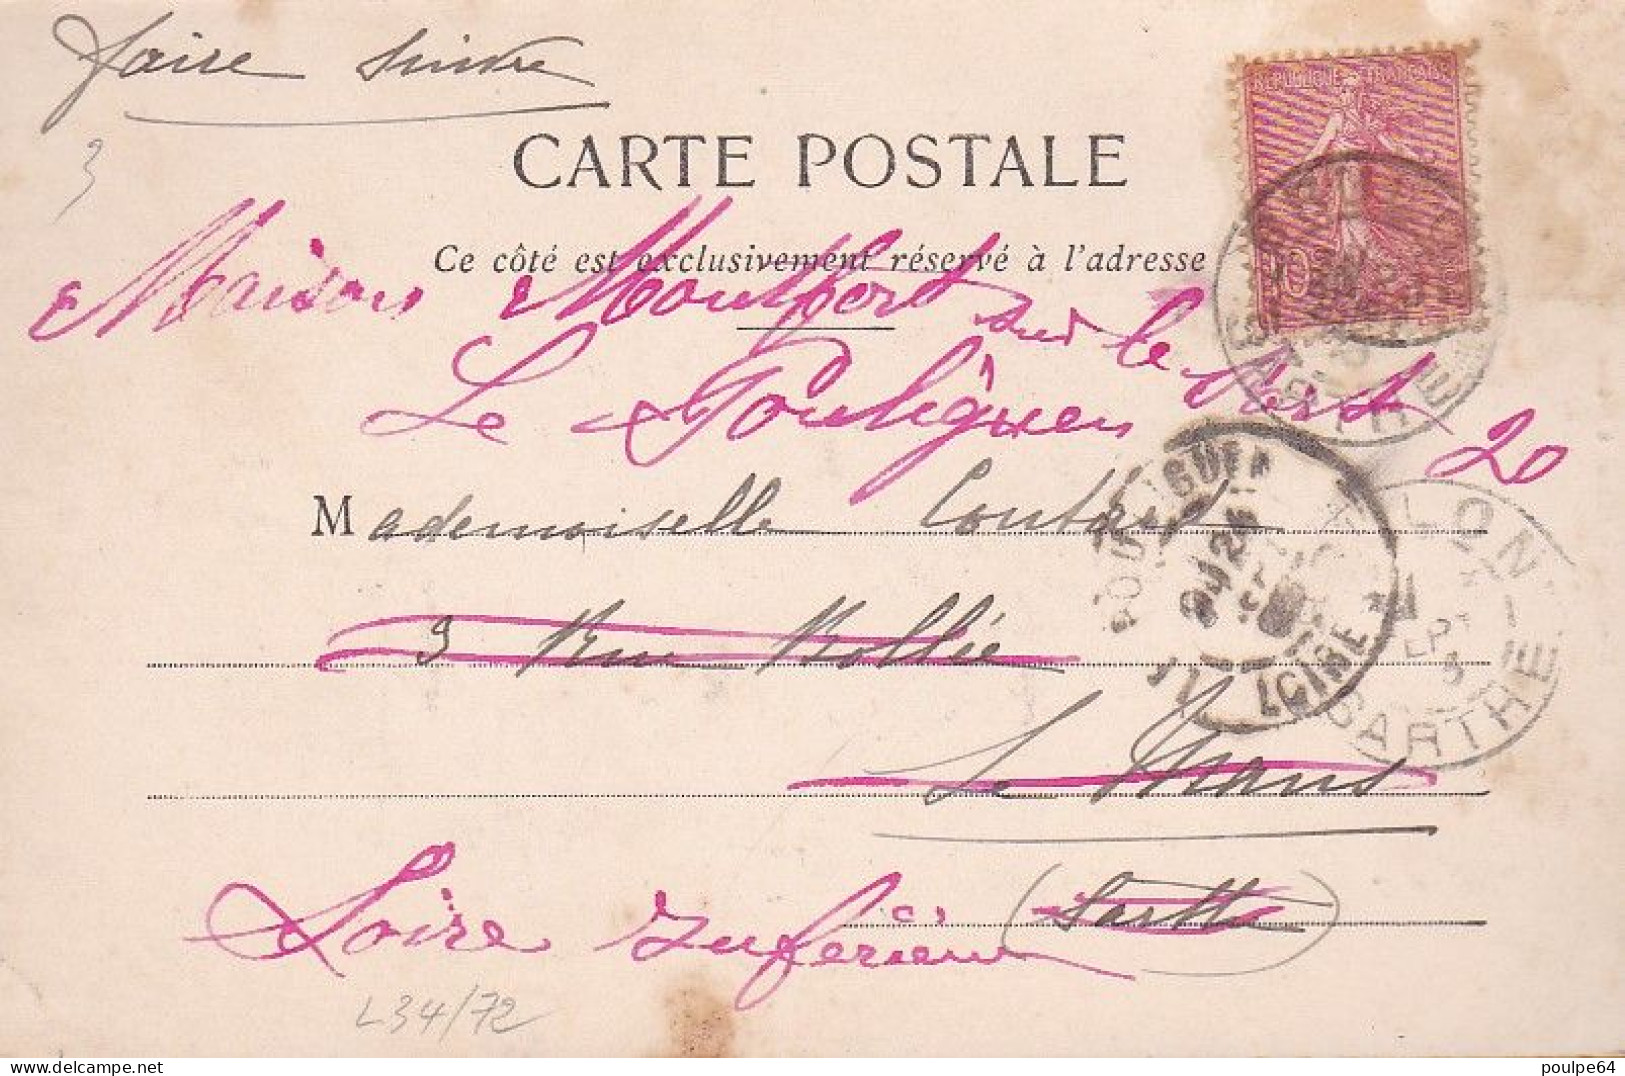 faire suivre
3
REPUBLIQUE FRANCAISE
10
CARTE POSTALE
Ce côté est exclusivement réservé à l'adresse
Maison Montfort sur le Port
Le Pouliguen 20
SARTHE
Mademoiselle
POULIGUEN
LOIRE
3 Rue Bollée
SARTHE
Le Mans
Sarthe
Loire Inférieure
L34/72
delcampe.net
poulpe64